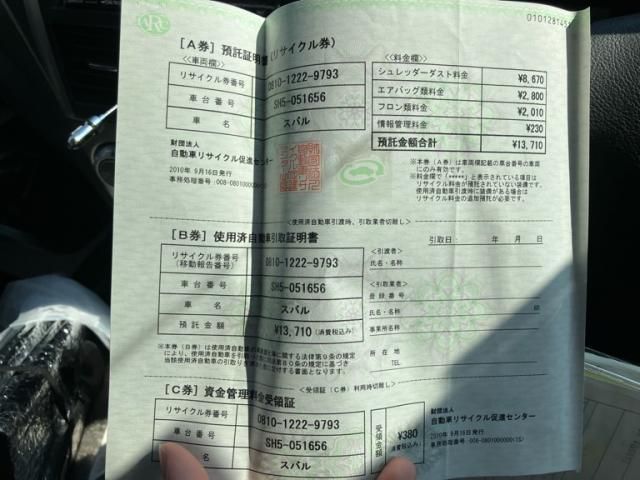 010128145
［A券］預託証明書（リサイクル券）
＜車両欄＞
リサイクル券番号 0810-1222-9793
車台番号 SH5-051656
車名 スバル
財団法人
自動車リサイクル促進センター
2010年 9月16日発行
＜料金欄＞
シュレッダーダスト料金 ¥8,670
エアバッグ類料金 ¥2,800
フロン類料金 ¥2,010
情報管理料金 ¥230
預託金額合計 ¥13,710
※本券（A券）は車両欄記載の車台番号の車両
にのみ有効です。
※料金欄で（*****）と表示されている項目は
リサイクル料金が預託されていない装備です。
使用済自動車引渡時に装備がある場合は
リサイクル料金の追加預託が必要です。
＜使用済自動車引渡時、引取業者切離し＞
［B券］使用済自動車引取証明書
リサイクル券番号
（移動報告番号） 0810-1222-9793
車台番号 SH5-051656
車名 スバル
預託金額 ¥13,710（消費税込み）
引取日： 年 月 日
＜引渡者＞
氏名・名称
＜引取業者＞
登録番号
氏名・名称 印
事業所名称
所在地
TEL
※本券（B券）は使用済自動車の
［C券］資金管理料金受領証
＜受領証（C券）利用時切離し＞
リサイクル券番号 0810-1222-9793
車台番号 SH5-051656
車名 スバル
受領金額 ¥380
（消費税込み）
財団法人
自動車リサイクル促進センター
2010年 9月16日発行